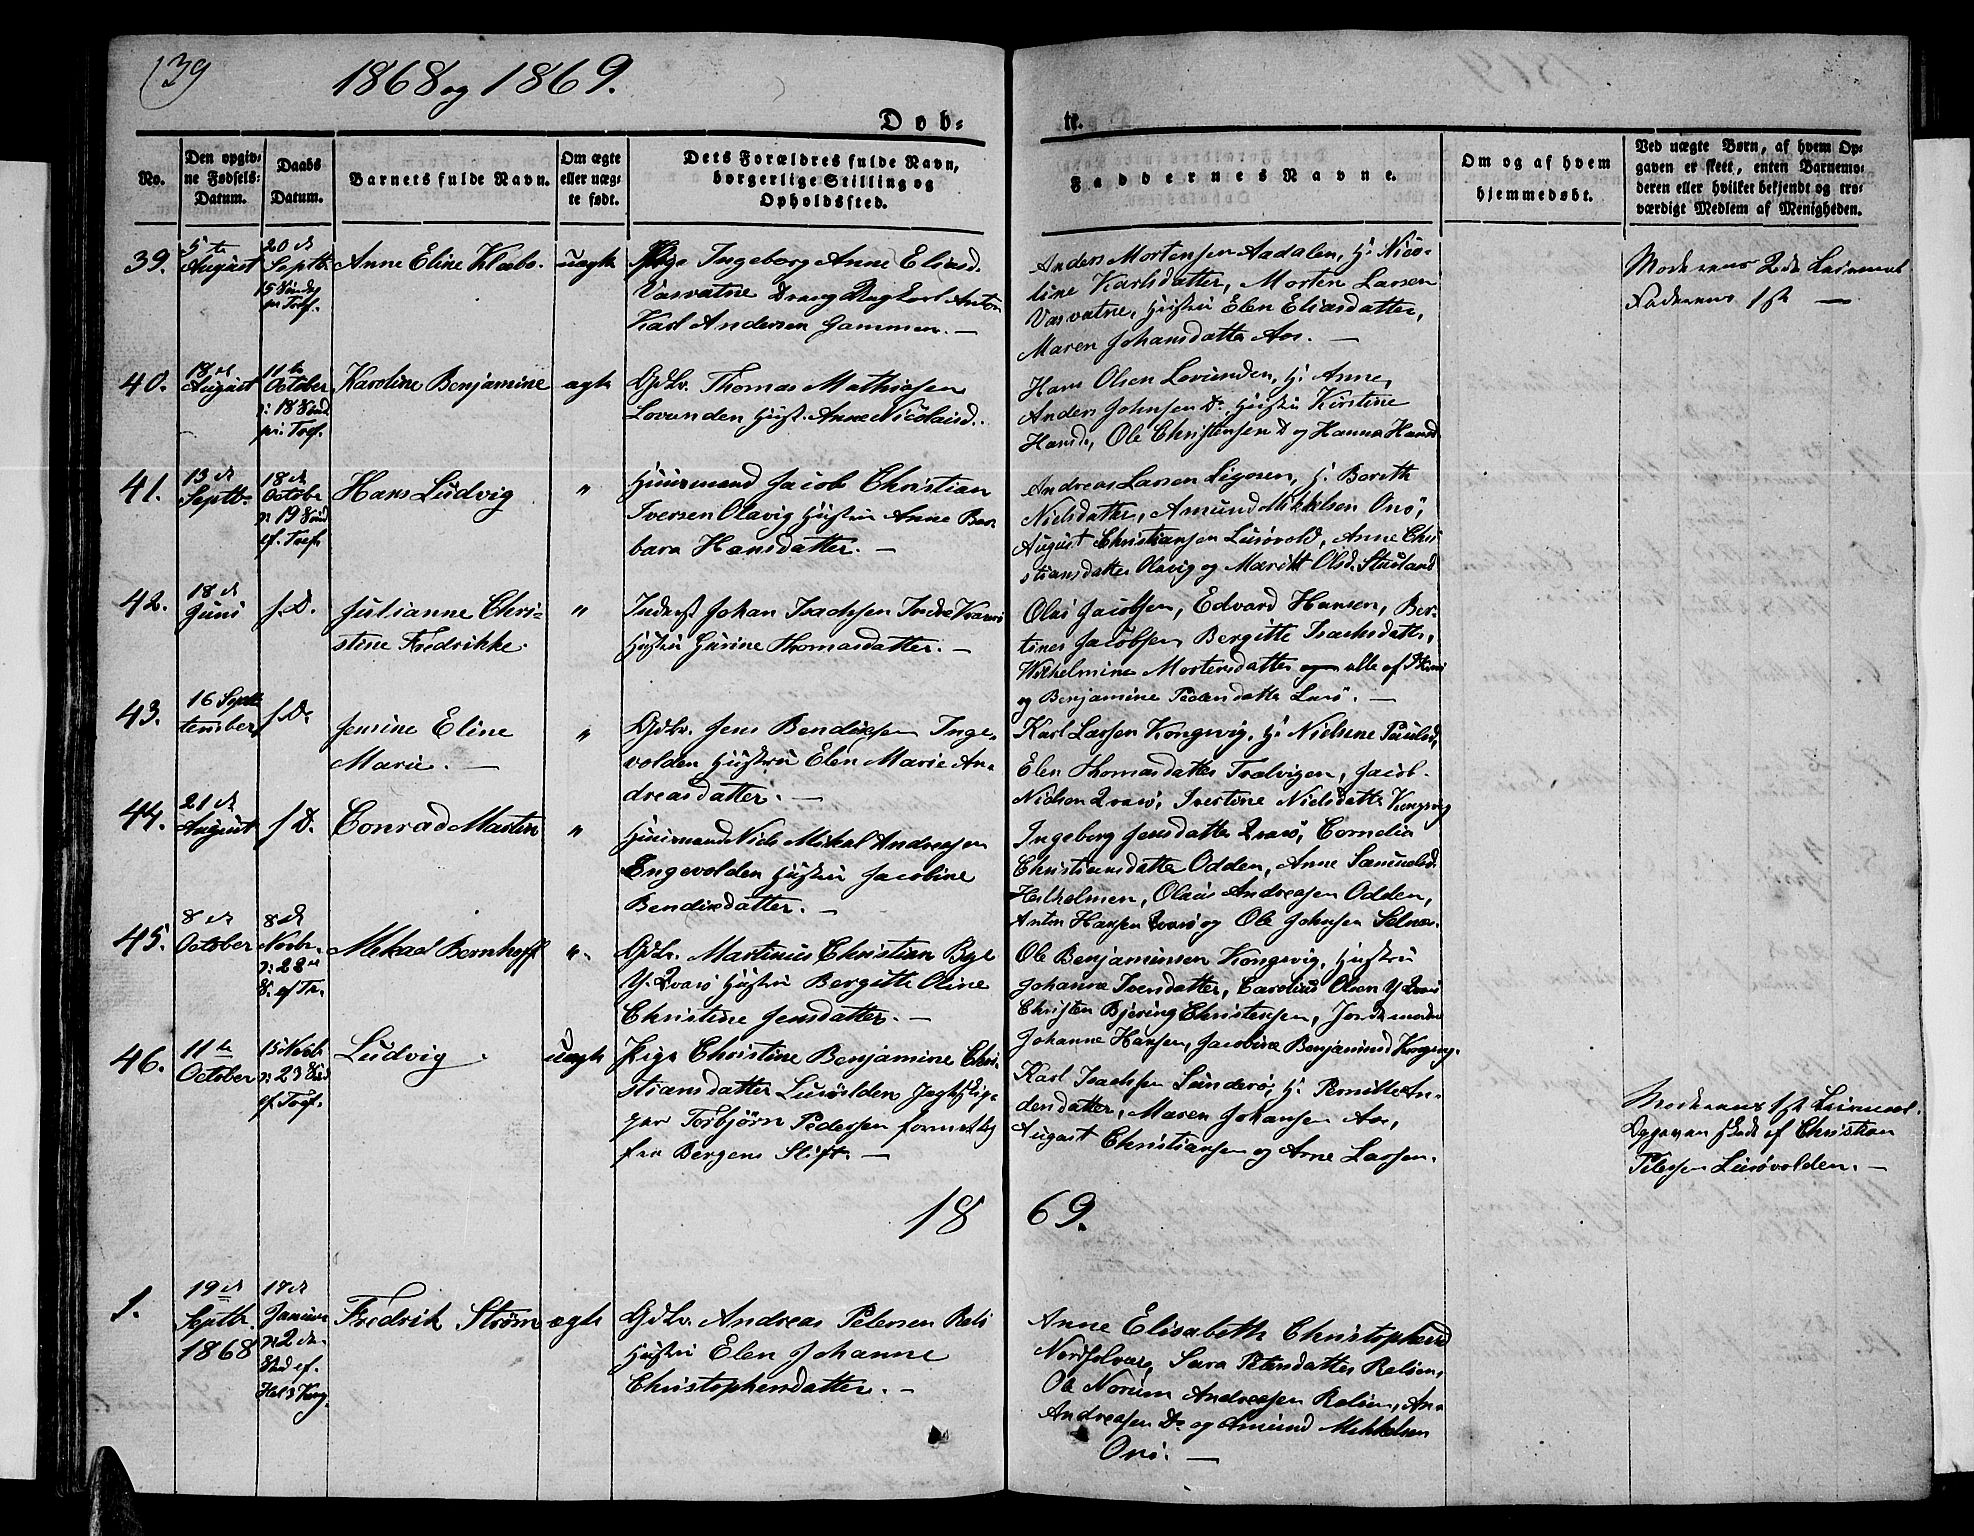 139
1868 og 1869.
Dob=
te.
No.
Den opgiv=
ne Fødsels=
Datum.
Daabs
Datum.
Barnets fulde Navn.
Om ægte
eller uæg=
te født.
Dets Forældres fulde Navn,
borgerlige Stilling og
Opholdssted.
Faddernes Navne.
Om og af hvem
hjemmedøbt.
Ved uægte Børn, af hvem Op=
gaven er skeet, enten Barnemo=
deren eller hvilket bekjendt og tro=
værdigt Medlem af Menigheden.
39.
5te
August
20 d
Septb.
15 Sønd
pr Tref.
Anne Eline Klæbo.
uægte
Pige Ingeborg Anne Eliasd.
Vasvatne Dreng Anton
Karl Andersen Gammen. —
Anders Mortensen Aadalen, H: Nico-
line Karlsdatter, Morten Larsen
Vasvatne, Hustru Elen Eliasdatter,
Maren Johansdatter Aas. —
Moderens 2det Leiermaal
Faderens 1ste —
40.
18de
August
11te
October
p: 18 Sønd
Tref.
Karoline Benjamine
ægte
Gdbr. Thomas Mathiasen
Lovunden Hust. Anne Nicolaisd.
Hans Olsen Lovunden, H: Anne,
Anders Johnsen Do, Hustru Kirstine
Hansd., Ole Christensen D og Hanna Hansd
41.
13 d
Septb.
18 d
Octobr
p: 19 Sønd
ef. Tref.
Hans Ludvig
"
Huusmand Jacob Christian
Iversen Olavig Hustru Anne Bar-
bara Hansdatter. —
Andreas Larsen Ligosen, H: Bereth
Nielsdatter, Amund Mikkelsen Onø,
August Christiansen Lurøvold, Anne Chri
stiansdatter Olavig og Maritt Olsd. Stuvland
42.
18 d
Juni
s. D.
Julianne Chri=
stine Fredrikke.
"
Inderst Johan Isachsen Indre Kvarø
Hustru Gurine Thomasdatter. —
Olai Jacobsen, Edvard Hansen, Ber-
tines Jacobsen Bergitte Isachsdatter,
Wilhelmine Mortensdatter alle af
og Benjamine Pedersdatter Lurø. —
43.
16 Sept
tember
s. D.
Jensine Eline
Marie. —
"
Gdbr. Jens Bendiksen Inge-
volden Hustru Elen Marie An-
dreasdatter. —
Karl Larsen Kongsvig, H: Nielsine Paulsd,
Elen Thomasdatter Trælvigen, Jacob
Nielsen Qvarø, Ivertine Nielsdatter Kongsvig
44.
21 d
August
s D.
Conrad Martin
"
Huusmand Niels Mikal Andreasen
Engevolden Hustru Jacobine
Bendixdatter. —
Ingeborg Jensdatter Qvarø, Cornelia
Christiansdatter Odden, Anne Samuelsd.
Heilholmen, Olaus Andreasen Odden,
Anton Hansen Qvarø og Ole Johnsen Selnæs.
45.
8 d
October
8 d
Novbr.
p: 22 d
S. ef Tr.
Mikael Bernhoft
"
Gdbr. Martinus Christian Bye
Y. Qvarø Hustru Bergitte Oline
Christine Jensdatter. —
Ole Benjaminsen Kongsvig, Hustru
Johanna Iversdatter, Carolius Olsen Y Qvarø
Christen Bjering Christensen, Jordemoder
Johanne Hansen, Jacobine Benjaminsd Kongsvig.
46.
11te
October
15 Novb.
p: 23 Sønd
ef Tref.
Ludvig.
uægte
Pige Christine Benjamine Chri-
stiansdatter Lurøvolden Jagtskip-
per Torbjørn Pedersen
fra Bergens Stift. —
Karl Isachsen Sunderø, H: Pernille An-
dersdatter, Maren Johansen Aas,
August Christiansen og Arne Larsen.
Moderens 1ste Leiermaal.
Opgaven skedt af Christian
Petersen Lurøvolden. —
18
69.
1.
19 d
Septb.
1868
17 d
Januar
p: 2 d
Sønd ef.
Hel 3 Kong.
Fredrik Strøm
ægte
Gdbr. Andreas Petersen Reli
Hustru Elen Johanne
Christophersdatter. —
Anne Elisabeth Christophersd
Nordsolvær, Sara Petersdatter Relien,
Ole Norum Andreasen Relien, An-
Andreasen Do og Amund Mikkelsen
Onø. —